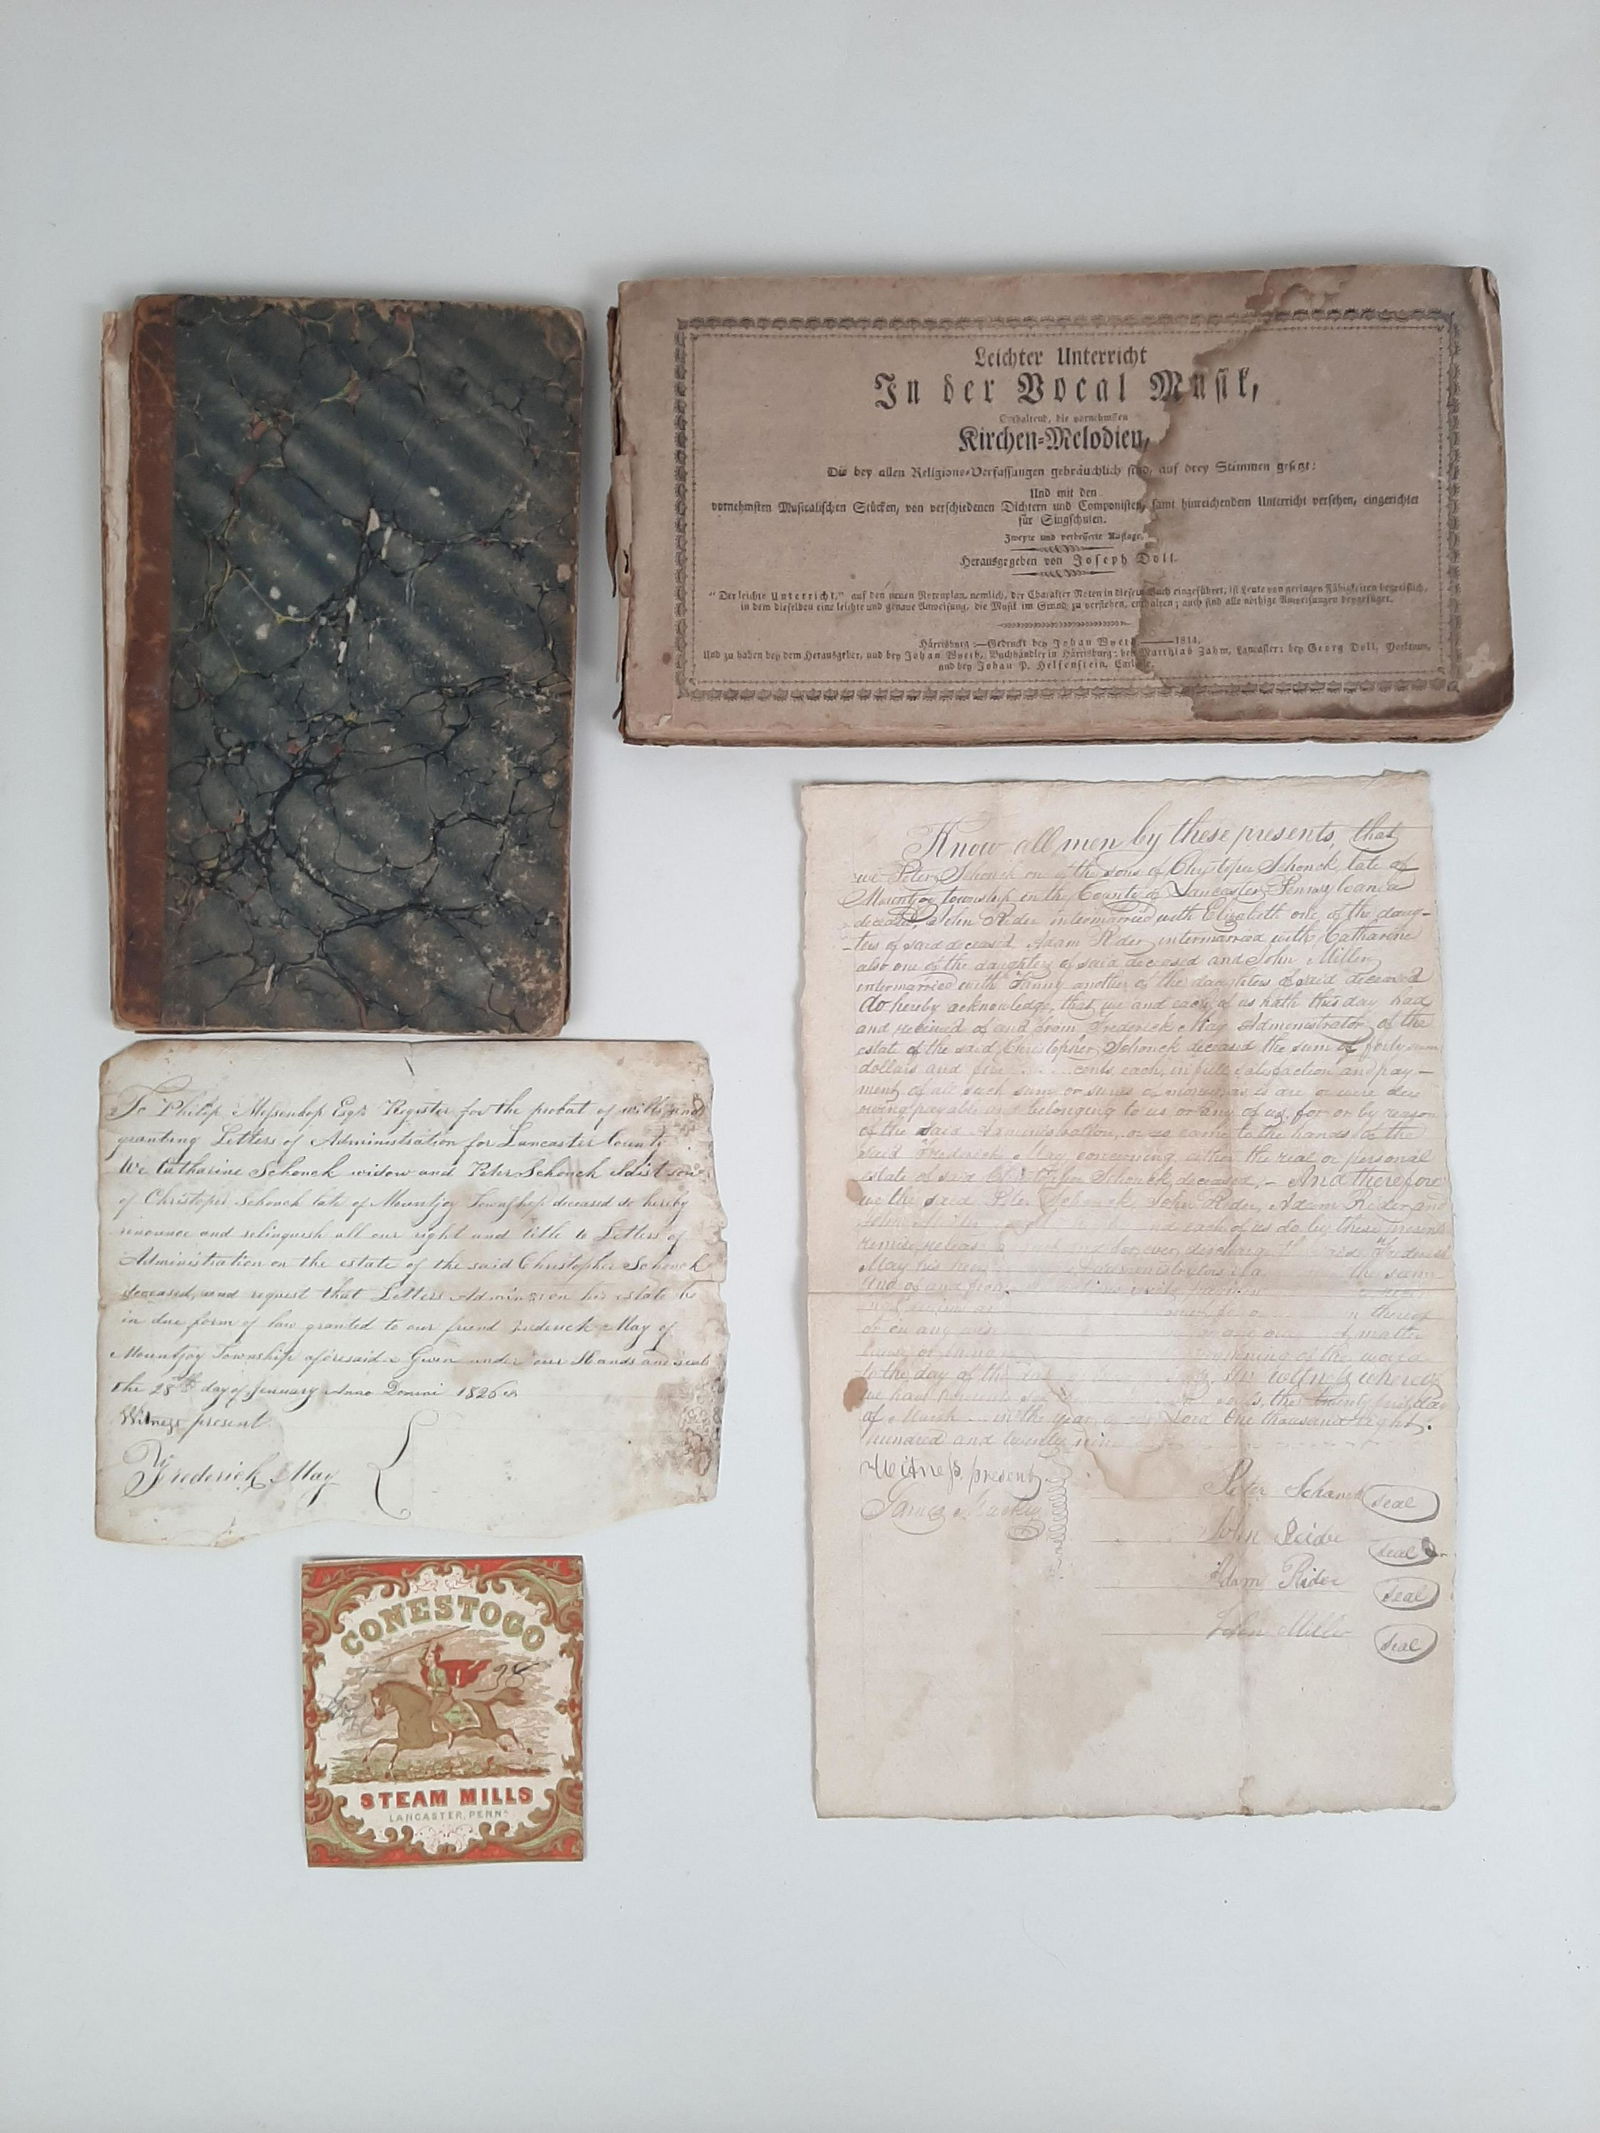 Leichter Unterricht
In der Vocal Musik,
Enthaltend, die vornehmsten
Kirchen=Melodien,
Die bey allen Religions=Verfassungen gebräuchlich sind, auf drey Stimmen gesetzt:
Und mit den
vornehmsten Musicalischen Stücken, von verschiedenen Dichtern und Componisten, samt hinreichendem Unterricht versehen, eingerichtet
für Singschulen.
Zweyte und verbesserte Auflage.
Herausgegeben von Joseph Doll.
"Der leichte Unterricht," auf den neuen Notenplan, nemlich, der Charakter Noten in diesem Buch eingeführet, ist Leute von geringen Fähigkeiten begreiflich,
in dem dieselben eine leichte und genaue Anweisung, die Musik im Grund zu verstehen, enthalten; auch sind alle nöthige Anweisungen beygefüget.
Härrisburg:—Gedruckt bey Johan Wyeth——1814.
Und zu haben bey dem Herausgeber, und bey Johan Wyeth, Buchhändler in Härrisburg: bey Matthias Zahm, Lancaster: bey Georg Doll, Yorktaun,
und bey Johan P. Helfenstein, Carlisle.
Know all men by these presents, that
we Peter Schonck on of the sons of Christopher Schonck, late of
Mountjoy township in the County of Lancaster Pennsylvania
deceased, John Rider intermarried with Elizabeth one of the daugh-
-ters of said deceased Adam Rider intermarried with Catharine
also one of the daughters of said deceased and John Miller
intermarried with Fanny another of the daughters of said deceased
do hereby acknowledge, that we and each of us hath this day had
and received of and from Frederick May Administrator of the
estate of the said Christopher Schonck deceased the sum of forty
dollars and five .... cents each, in full satisfaction and pay-
ment of all such sum or sums of money, as is are or were due
owing payable and belonging to us or any of us, for or by reason
of the said Administration, or as came to the hands of the
said Frederick May concerning either the real or personal
estate of said Christopher Schonck, deceased,- And therefore
we the said Peter Schonck, John Rider, Adam Rider and
John Miller and each of us do by these presents
remise release and forever discharge the said Frederick
May his Administrators the same
and of and from
thereof
or in any wise matter
cause or thing beginning of the world
to the day of the In witness whereof
we have the twenty first day
of March in the year of our Lord One thousand eight
hundred and twenty nine
Witness present
James
Peter Schonck seal
John Reider seal
Adam Rider seal
John Miller seal
To Philip Messenkop Esqr Register for the probat of wills and
granting Letters of Administration for Lancaster County.
We Catharine Schonck widow and Peter Schonck eldist son
of Christoper Schonck late of Mountjoy Township deceased do hereby
renounce and relinquish all our right and title to Letters of
Administration on the estate of the said Christopher Schonck
deceased, and request that Letters Admin on his estate be
in due form of law granted to our friend Frederick May of
Mountjoy Township aforesaid Given under our Hands and seals
the 28th day of January Anno Domini 1826
Witness present
Frederick May
CONESTOGO
98
STEAM MILLS
LANCASTER, PENNA